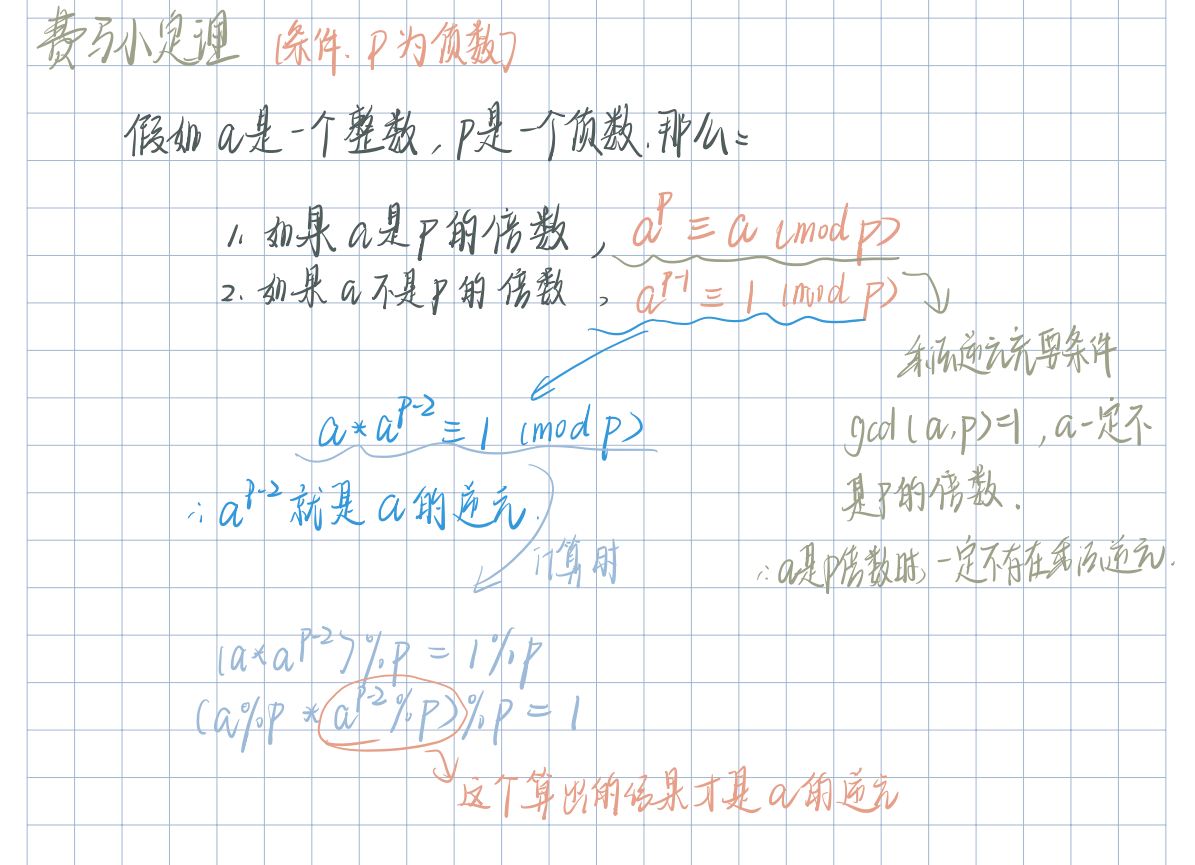 费马小定理 (条件. p为质数)
假如a是一个整数,p是一个质数.那么:
1. 如果a是p的倍数, a^p ≡ a (mod p)
2. 如果a不是p的倍数, a^{p-1} ≡ 1 (mod p)
乘法逆元充要条件
gcd(a,p)=1,a一定不
是p的倍数.
∴a是p倍数时,一定不存在乘法逆元.
a*a^{p-2} ≡ 1 (mod p)
∴a^{p-2}就是a的逆元.
计算时
(a*a^{p-2})%p = 1%p
(a%p * a^{p-2}%p)%p = 1
这个算出的结果才是a的逆元